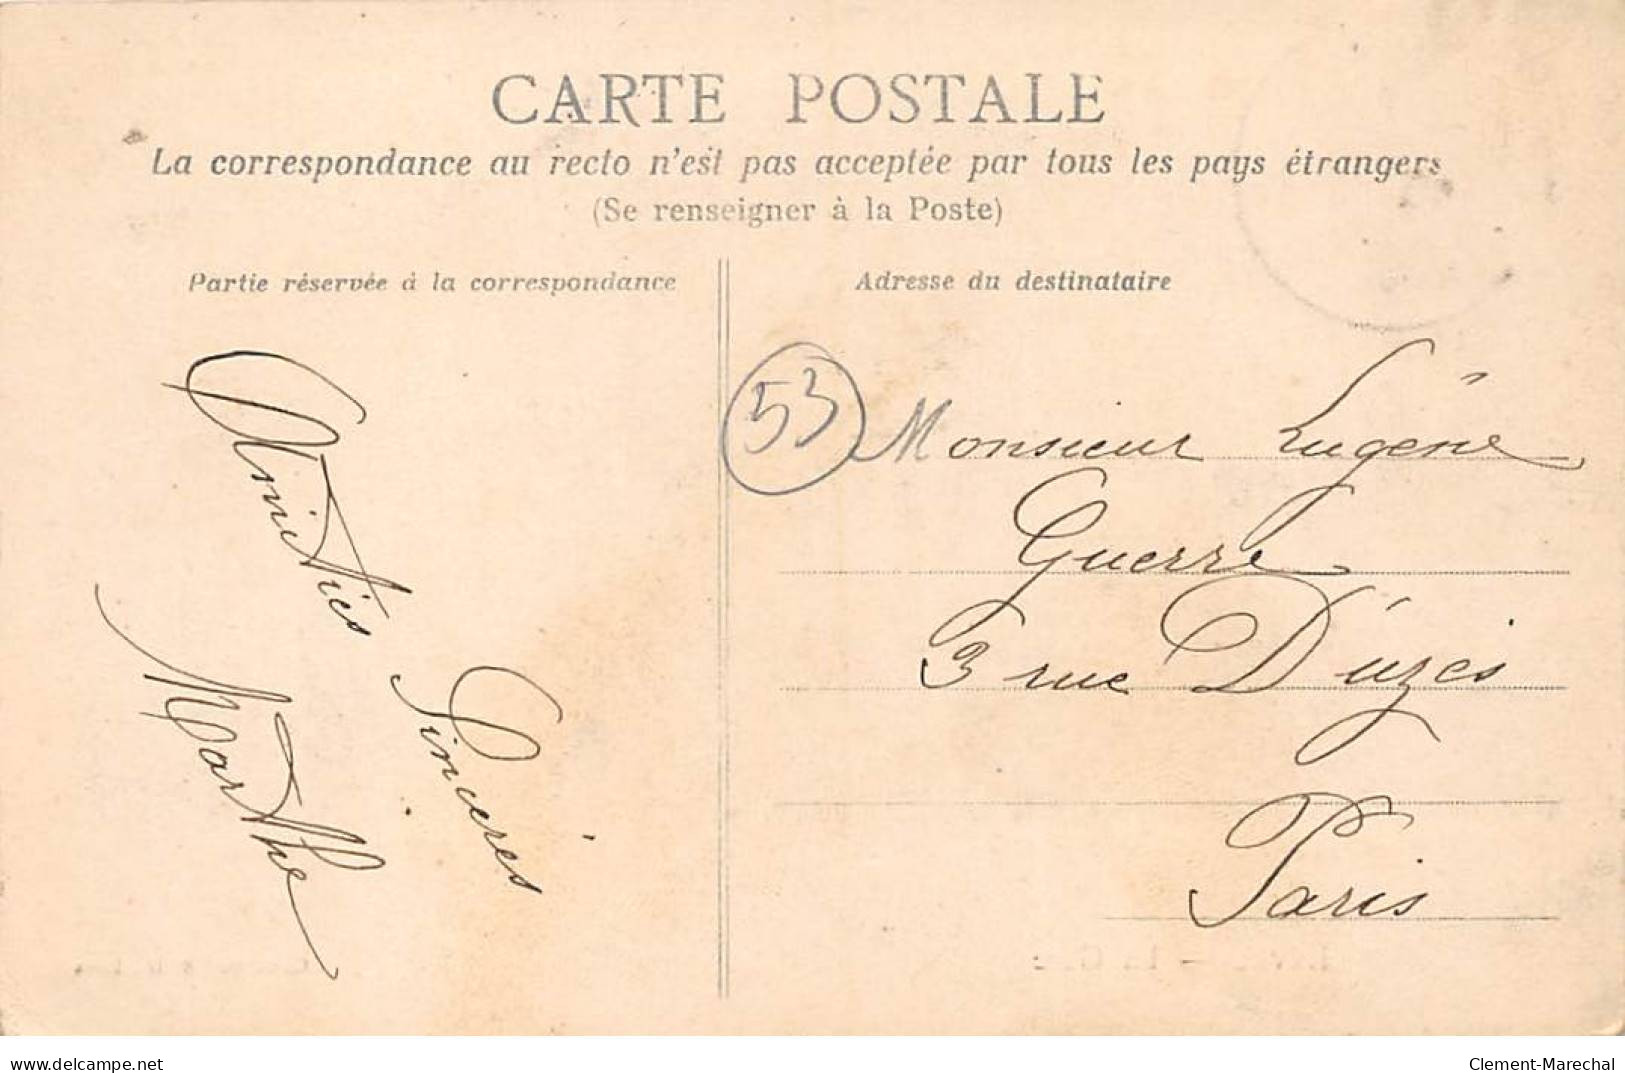 CARTE POSTALE
La correspondance au recto n'est pas acceptée par tous les pays étrangers
(Se renseigner à la Poste)
Partie réservée à la correspondance
Amitiés Sincères
Marthe
Adresse du destinataire
53
Monsieur Eugène
Guerre
3 rue D'uzès
Paris
www.delcampe.net
Clement-Marechal